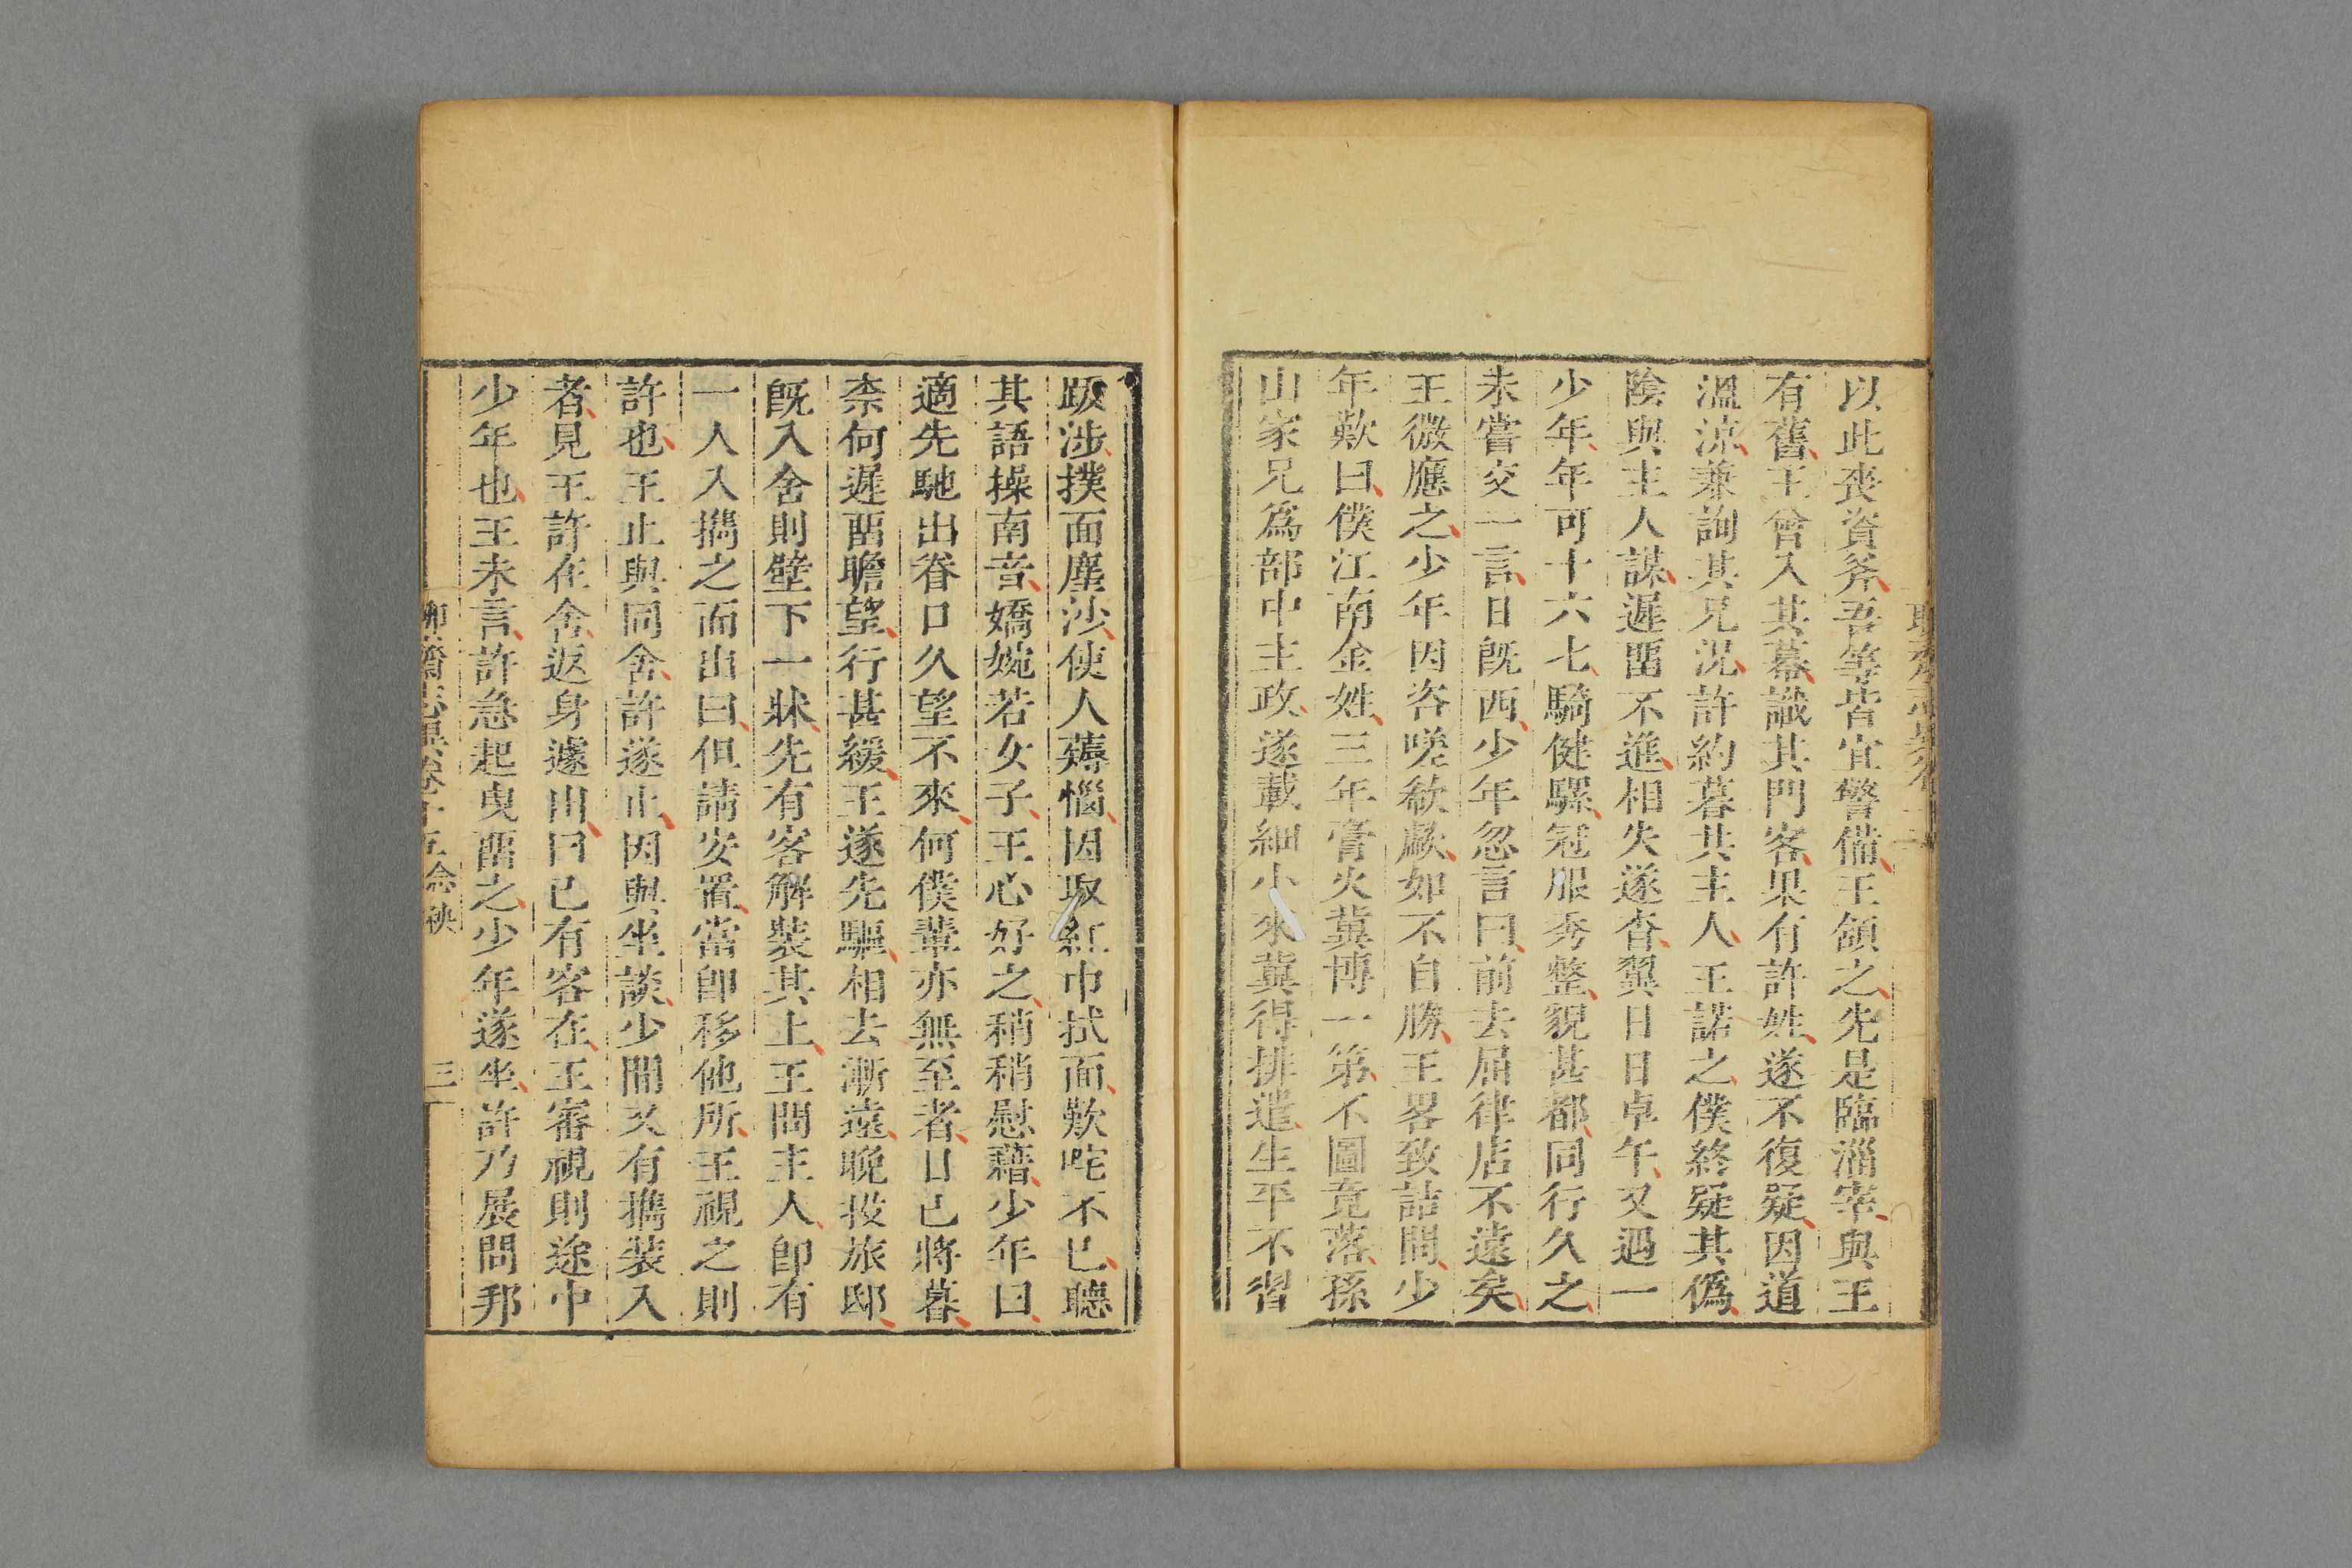 以此喪資斧吾等皆宜警備王頷之先是臨淄宰與王
有舊王曾入其幕識其門客果有許姓遂不復疑因道
溫涼兼詢其兄況許約暮共主人王諾之僕終疑其僞
陰與主人謀遲畱不進相失遂杳翼日日卓午又遇一
少年年可十六七騎健騾冠服秀整貌甚都同行久之
未嘗交一言日旣西少年忽言曰前去屈律店不遠矣
王微應之少年因咨嗟欷歔如不自勝王畧致詰問少
年歎曰僕江南金姓三年膏火冀博一第不圖竟落孫
山家兄爲部中主政遂載細小來冀得排遣生平不習
跋涉撲面塵沙使人薅惱因取紅巾拭面歎咤不已聽
其語操南音嬌婉若女子王心好之稍稍慰藉少年曰
適先馳出眷口久望不來何僕輩亦無至者日已將暮
柰何遲畱瞻望行甚緩王遂先驅相去漸遠晚投旅邸
旣入舍則壁下一牀先有客解裝其上王問主人卽有
一人入擕之而出曰但請安置當卽移他所王視之則
許也王止與同舍許遂止因與坐談少間又有擕裝入
者見王許在舍返身遽出曰已有客在王審視則途中
少年也王未言許急起曳畱之少年遂坐許乃展問邦
聊齋志異卷十五 念秧 三